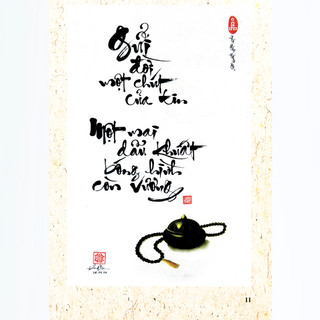 Gửi đời
một chút
của tin
Một mai
dẫu khuất
bóng hình
còn vương
11